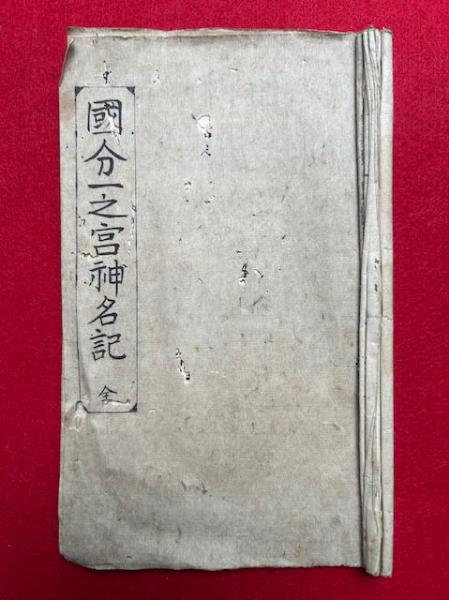 國分一之宮神名記 全